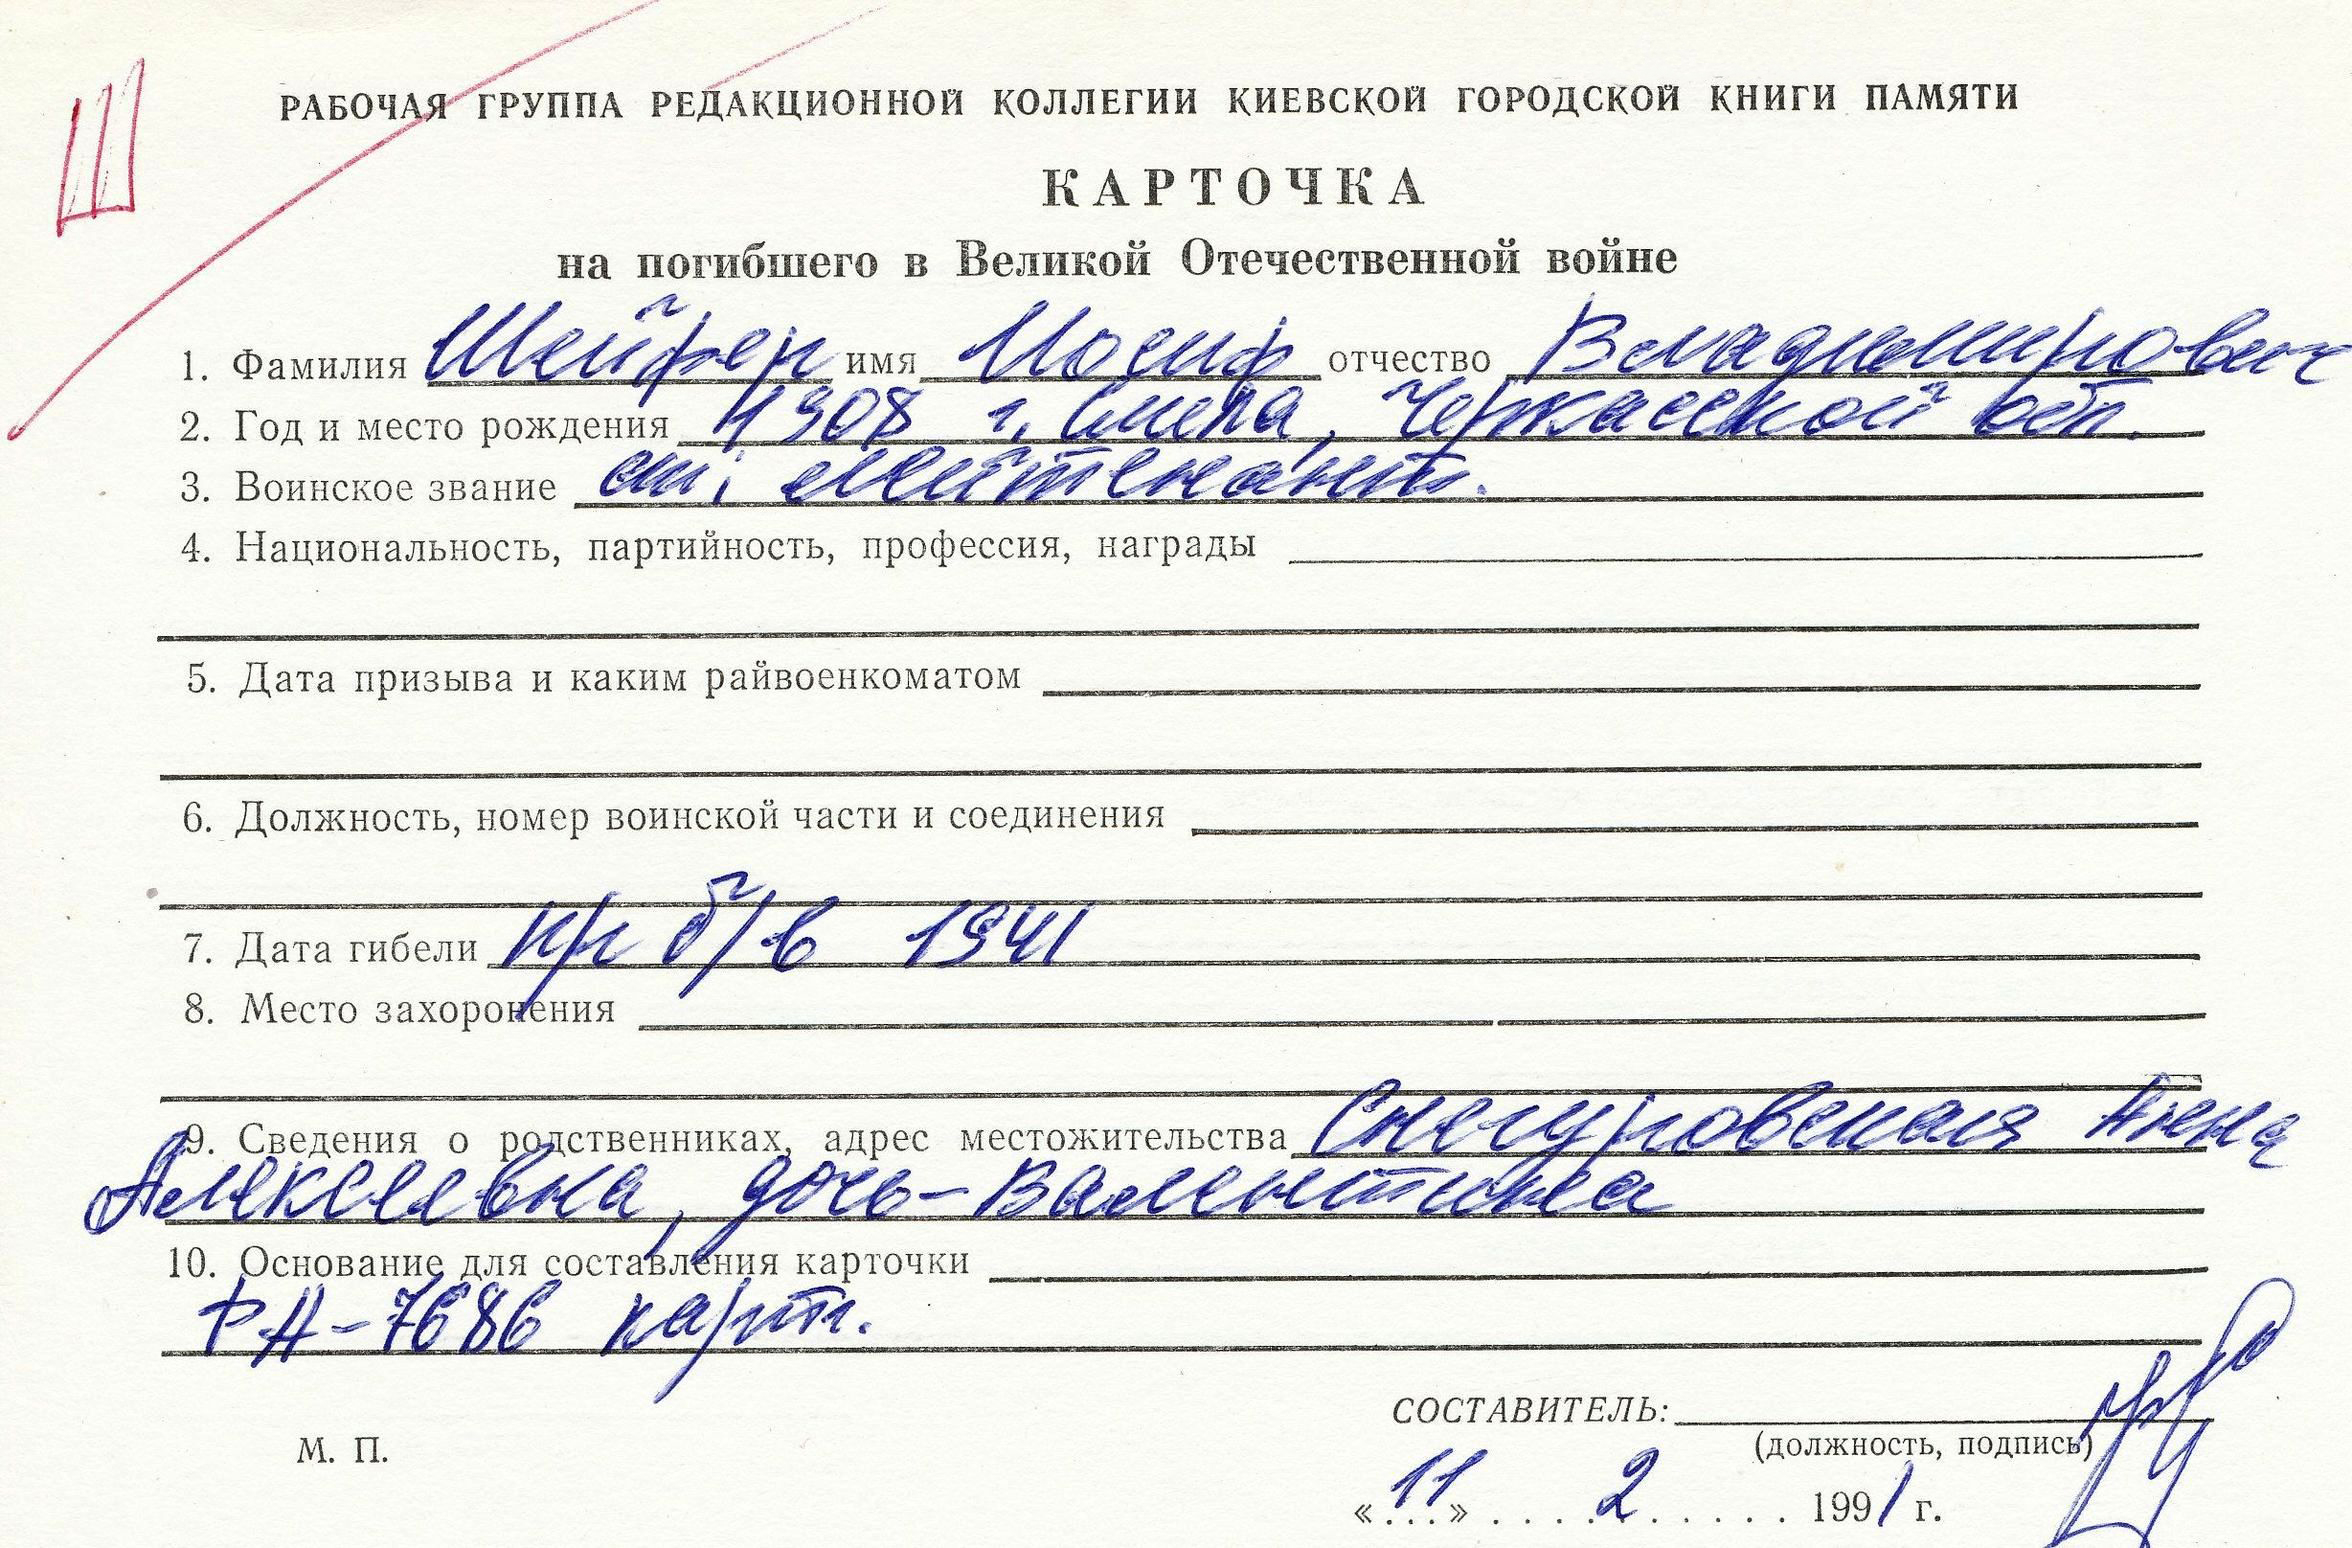 Ш
РАБОЧАЯ ГРУППА РЕДАКЦИОННОЙ КОЛЛЕГИИ КИЕВСКОЙ ГОРОДСКОЙ КНИГИ ПАМЯТИ
КАРТОЧКА
на погибшего в Великой Отечественной войне
1. Фамилия Шейфер имя Иосиф отчество Владимирович
2. Год и место рождения 1908 г. Смела, Черкасской обл.
3. Воинское звание ст. лейтенант.
4. Национальность, партийность, профессия, награды
5. Дата призыва и каким райвоенкоматом
6. Должность, номер воинской части и соединения
7. Дата гибели пр б/в 1941
8. Место захоронения
9. Сведения о родственниках, адрес местожительства Снегуровская Анна
Алексеевна, дочь-Валентина
10. Основание для составления карточки
РА-7686 карт.
СОСТАВИТЕЛЬ:
(должность, подпись)
М. П.
«11» 2 1991 г.